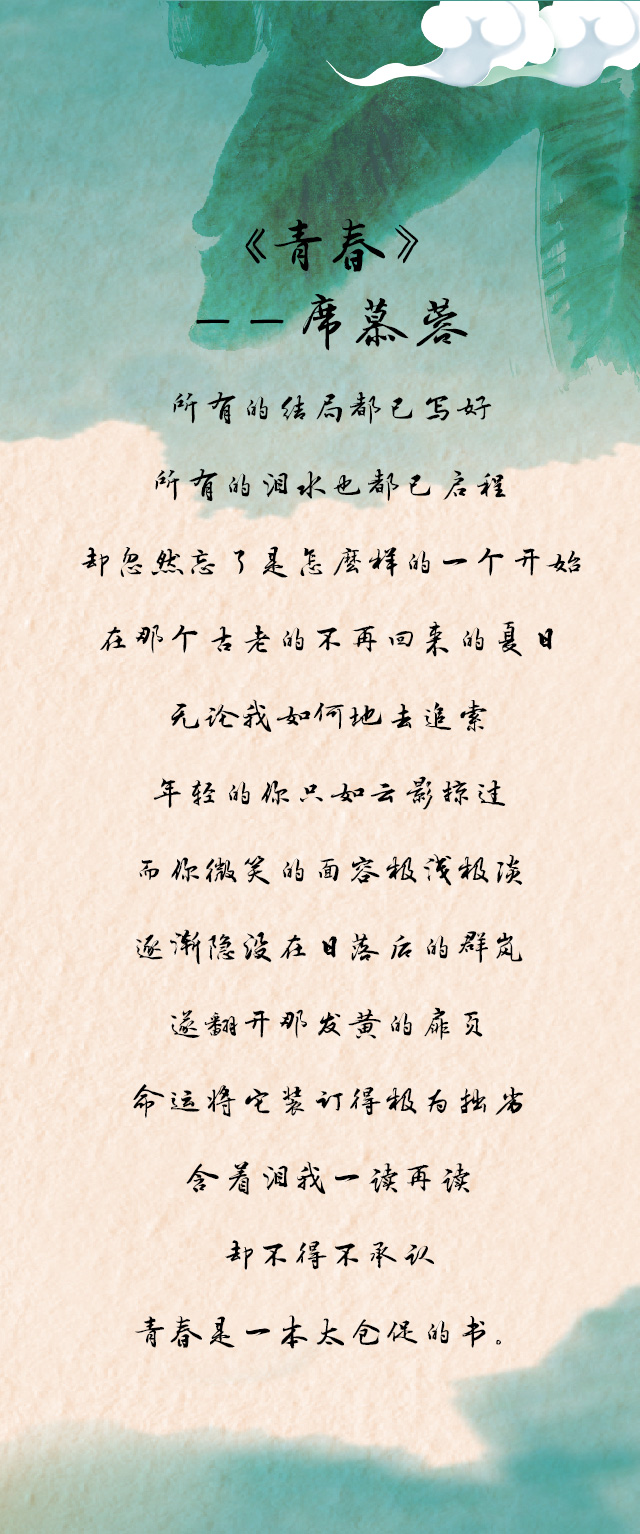 《青春》
——席慕蓉
所有的结局都已写好
所有的泪水也都已启程
却忽然忘了是怎麽样的一个开始
在那个古老的不再回来的夏日
无论我如何地去追索
年轻的你只如云影掠过
而你微笑的面容极浅极淡
逐渐隐没在日落后的群岚
遂翻开那发黄的扉页
命运将它装订得极为拙劣
含着泪我一读再读
却不得不承认
青春是一本太仓促的书。